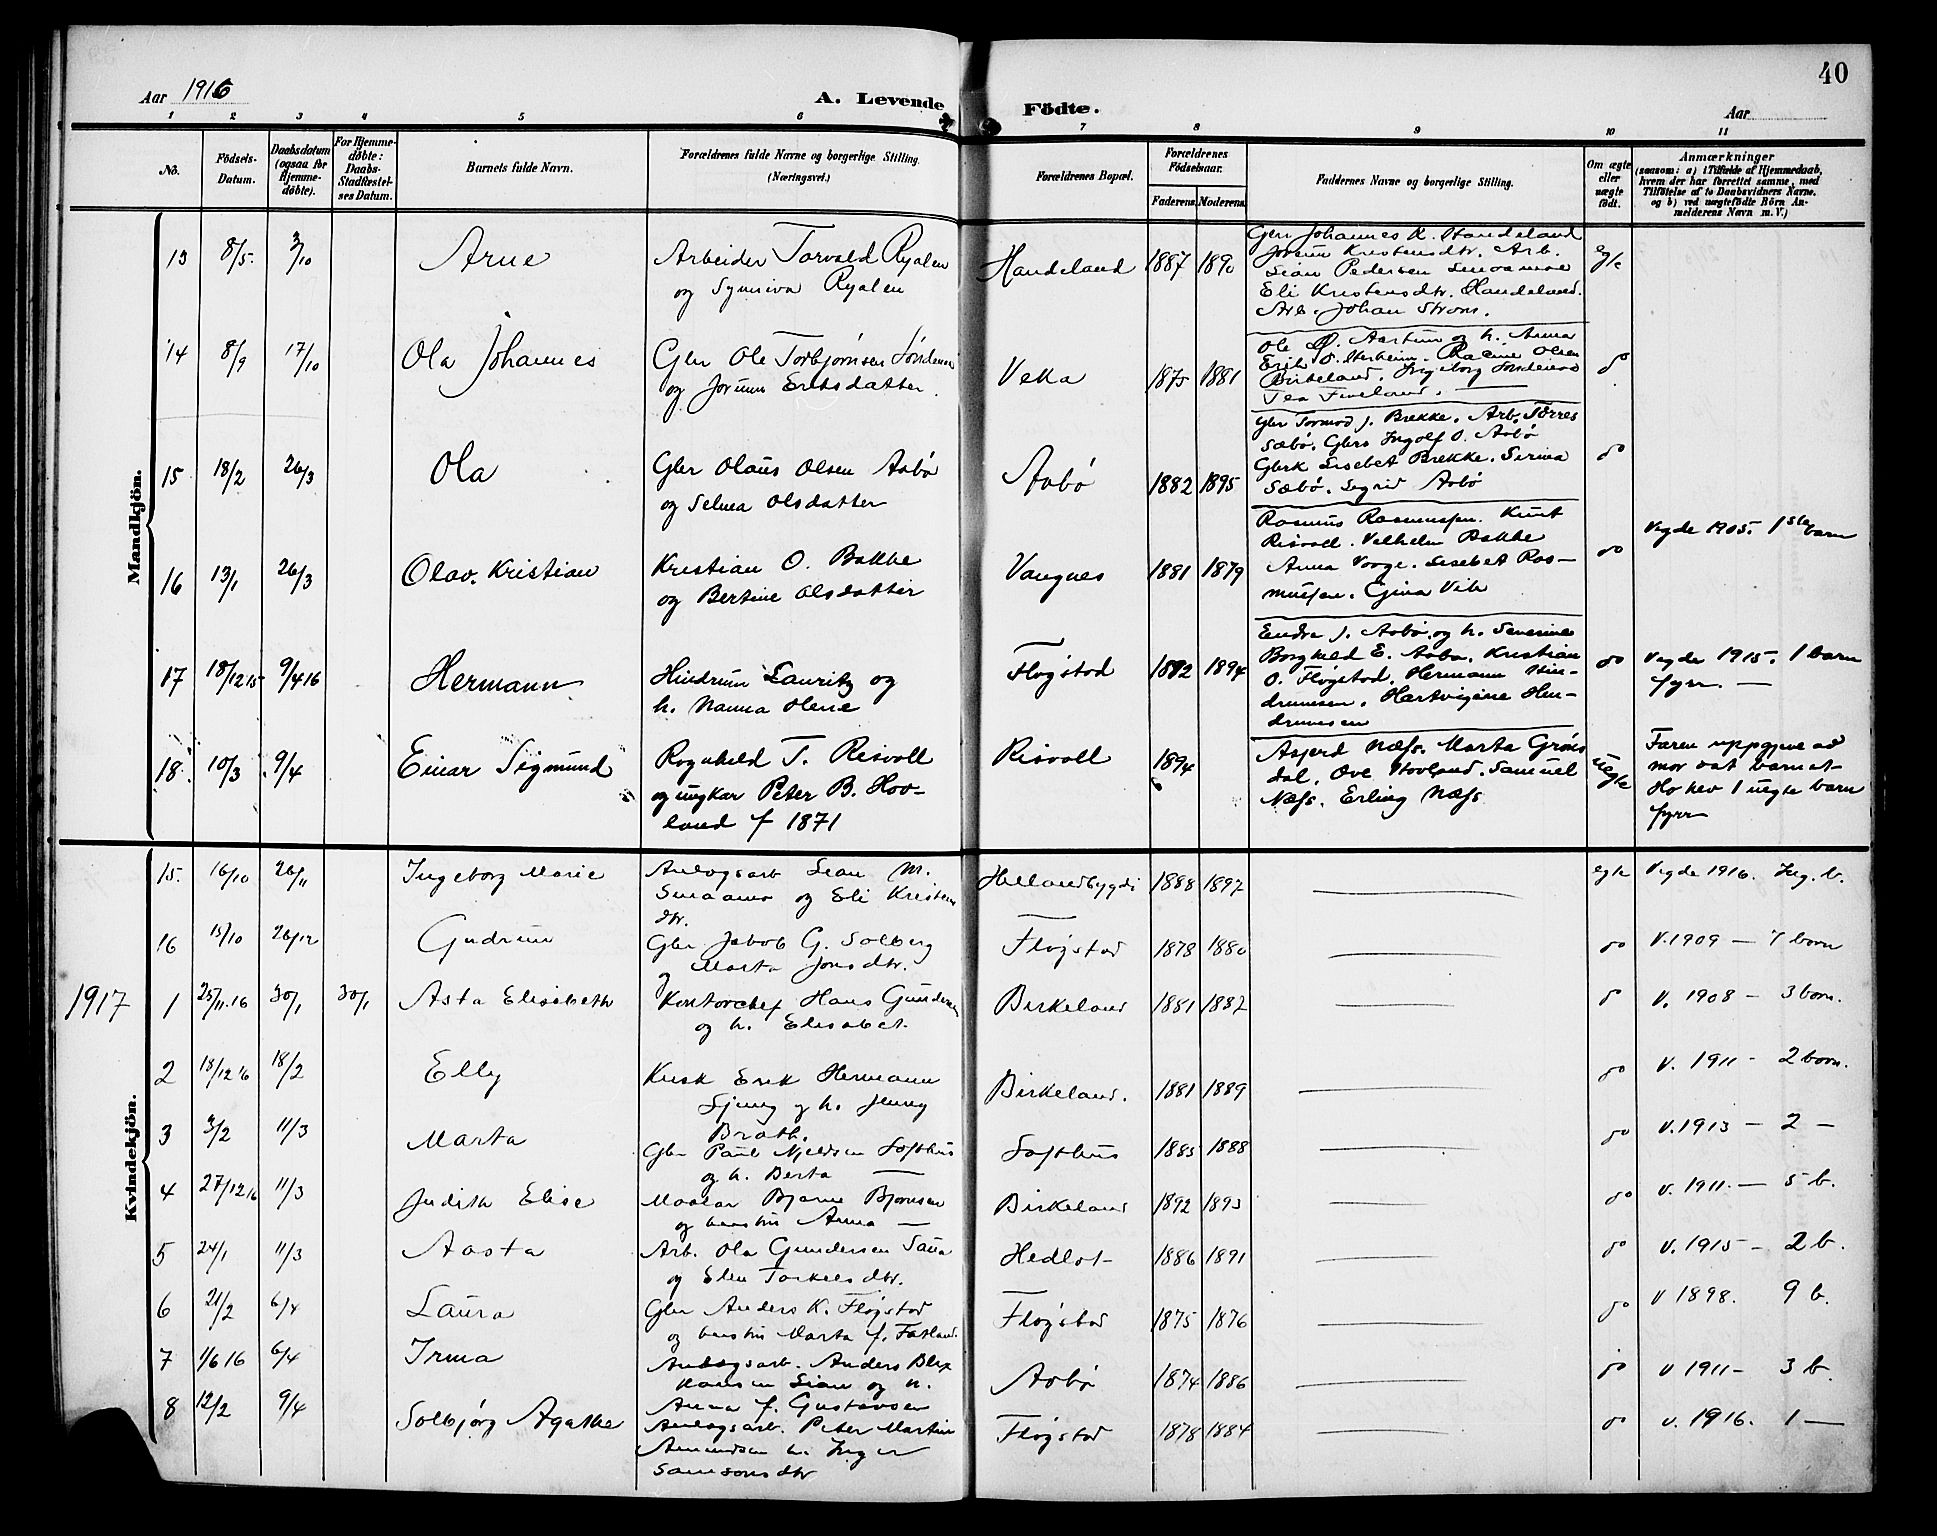 40
Aar 1916
A. Levende Födte.
Aar
1 2 3 4 5 6 7 8 9 10 11
No.
Födsels-Datum.
Daabsdatum (ogsaa for Hjemme-døbte).
For Hjemme-døbte: Daabs-Stadfæstel-ses Datum.
Barnets fulde Navn.
Forældrenes fulde Navne og borgerlige Stilling. (Næringsvei.)
Forældrenes Bopæl.
Forældrenes Fødselsaar.
Faderens. Moderens.
Faddernes Navne og borgerlige Stilling.
Om ægte eller uægte födt.
Anmærkninger
(saasom: a) i Tilfælde af Hjemmedaab,
hvem der har forrettet samme, med
Tilføielse af to Daabsvidners Navne,
og b) ved uægtefödte Börn An-
melderens Navn m. V.)
Mandkjön.
13 8/5 3/10 Arne
Arbeider Torvald Ryalen
og Synniva Ryalen
Handeland 1887 1890
Gbr Johannes K. Handeland
Jorunn Kristensdtr. Arb.
Sian Pedersen
Eli Kristensdtr. Handeland.
Arb. Johan Strøm.
egte
14 8/9 17/10 Ola Johannes
Gbr Ole Torbjørnsen
og Jorunn Eriksdatter.
Veka 1875 1881
og h. Anna
Olsen
Birkeland. Ingeborg
do
15 18/2 26/3 Ola
Gbr Olaus Olsen Aabø
og Selma Olsdatter
Aabø 1882 1895
Gbr Tormod J. Brekke. Arb. Tørres
Sæbø. Gbrs Ingolf O. Aabø
Gbrk Lisebet Brekke. Serina
Sæbø. Sigrid Aabø
do
16 13/1 26/3 Olav Kristian
Kristian O. Bakke
og Bertine Olsdatter
Vangnes 1881 1879
Rasmus Rasmussen. Knut
Risvoll. Vilhelm Bakke
Anna Vorge. Lisebet Ras-
mussen. Gina Vik
do
Vigde 1905. 1ste barn
17 18/12 15 9/4 16 Hermann
Hindrum Lauritz og
h. Nanna Olene
Fløgstad 1892 1894
Endre J. Aabø og h. Severine
Borghild E. Aabø. Kristian
O. Fløgstad. Hermann Hin-
drumsen. Hartvigine Hin-
drumsen
do
Vigde 1915. 1 barn
fyrr. —
18 10/3 9/4 Einar Sigmund
Ragnhild T. Risvoll
og ungkar Peter B. Hov-
land f 1871
Risvoll 1894
Asjerd Næss. Marta Grøns
dal. Ove Hovland. Samuel
Næss. Erling Næss
uegte
Faren uppgjeve av
mor åt barnet.
Ho hev 1 uegte barn
fyrr
Kvindekjön.
15. 16/10 26/11 Ingeborg Marie
Anlegsarb Sian M.
og Eli Kristens
dtr.
Hellandsbygdi 1888 1897
egte Vigde 1916. Ing. b.
16 15/10 26/12 Gudrun
Gbr Jakob G. Solberg
og Marta Jonsdtr.
Fløgstad 1878 1880
do V. 1909 — 7 born
1917
1 25/11 16 30/1 30/1 Asta Elisabeth
Kontorchef Hans Gundersen
og h. Elisabet.
Birkeland 1881 1882
do V. 1908 — 3 born.
2 18/12 16 18/2 Elly
Kusk Erik Hermann
Ljung og h. Jenny
Brath.
Birkeland. 1881 1889
do V. 1911 - 2 born.
3 3/2 11/3 Marta
Gbr Paul Njeldsen Softhus
og h. Berta —
Softhus 1885 1888
do V. 1913 — 2 —
4 27/12 16 11/3 Judith Elise
Maalar Bjarne Bjørnsen
og hustru Anna —
Birkeland 1892 1893
do V. 1911 — 5 b.
5 24/1 11/3 Aasta
Arb. Ola Gundersen Saua
og Elen Torkelsdtr.
Hedlot 1886 1891
do V. 1915 — 2 b.
6 21/2 6/4 Laura
Gbr Anders K. Fløgstad
og hustru Marta f. Fatland.
Fløgstad 1875 1876
do V 1898. 9 b.
7 1/6 16 6/4 Irma
Anlegsarb. Anders Blix
Hansen Lian og h.
Anna f. Gustavsen
Aabø 1874 1886
do V 1911 — 3 b.
8 12/2 9/4 Solbjørg Agathe
Anlegsarb. Peter Martin
Amundsen h. Inger
Samsonsdtr
Fløgstad 1878 1884
do V. 1916. 1 —